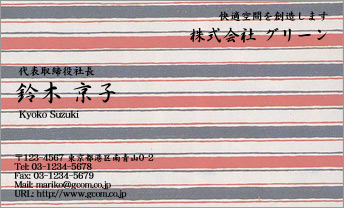 快適空間を創造します
株式会社 グリーン
代表取締役社長
鈴木 京子
Kyoko Suzuki
〒123-4567 東京都港区南青山0-2
Tel: 03-1234-5678
Fax: 03-1234-5679
Mail: mariko@gcom.co.jp
URL: http://www.gcom.co.jp